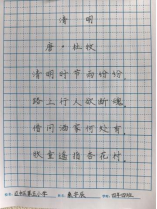 清明
唐·杜牧
清明时节雨纷纷，
路上行人欲断魂。
借问酒家何处有，
牧童遥指杏花村。